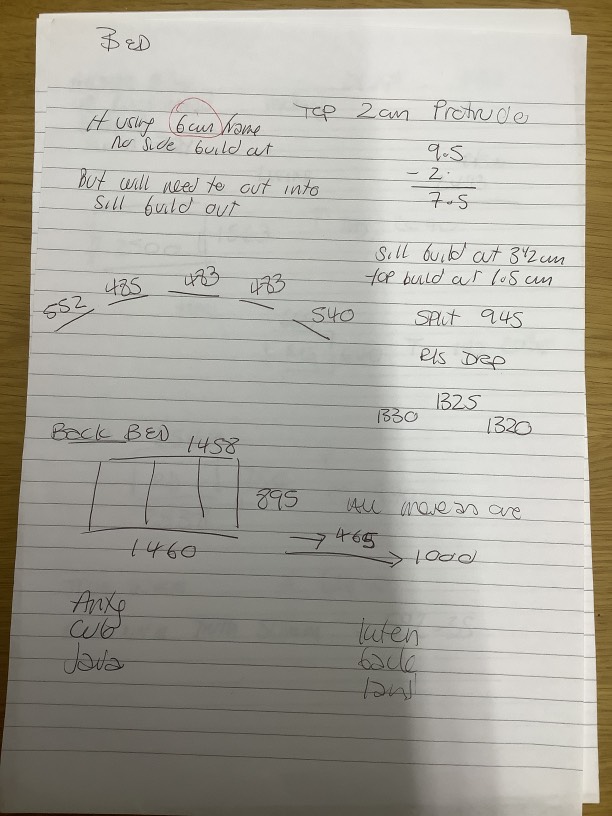 BED
If using 6cm frame
no side build out
But will need to cut into
sill build out
Top 2cm Protrude
9.5
- 2.
7.5
sill build out 3 1/2 cm
top build out 1.5 cm
Split 945
552 485 483 483 540
1330 1325 1320
BACK BED
1458
895
1460
All move as one
→ 465
→ 1000
cub
Java
back